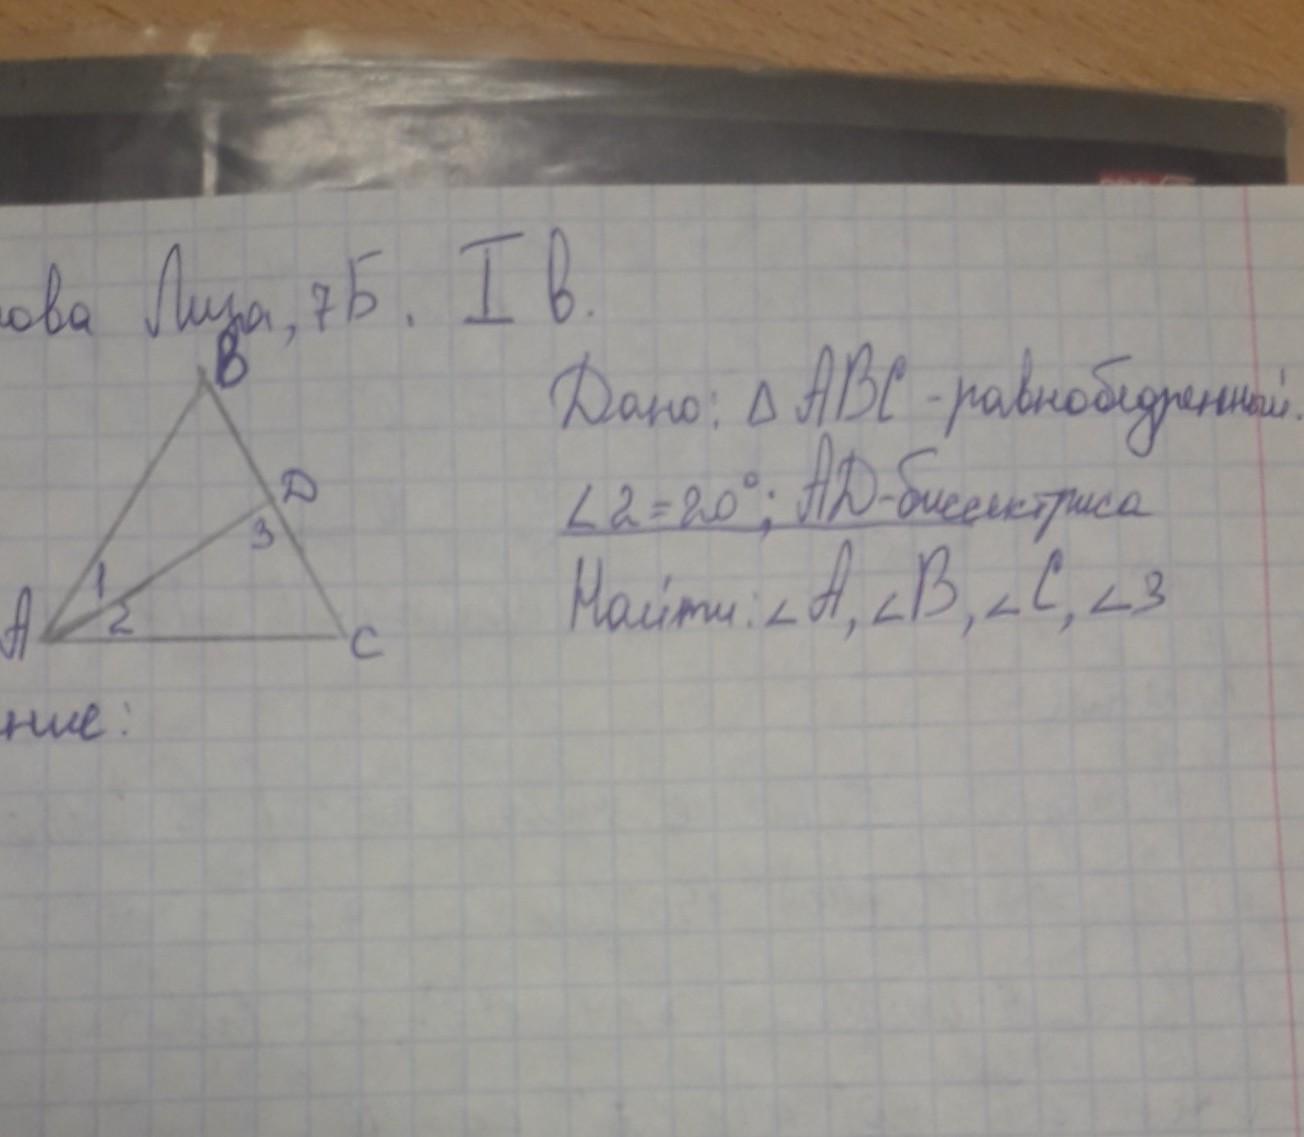 ова Лиза, 7Б. I в.
B
Дано: Δ ABC - равнобедренный.
D
∠2=20°; AD-биссектриса
3
1
Найти: ∠A, ∠B, ∠C, ∠3
A 2 C
ние: